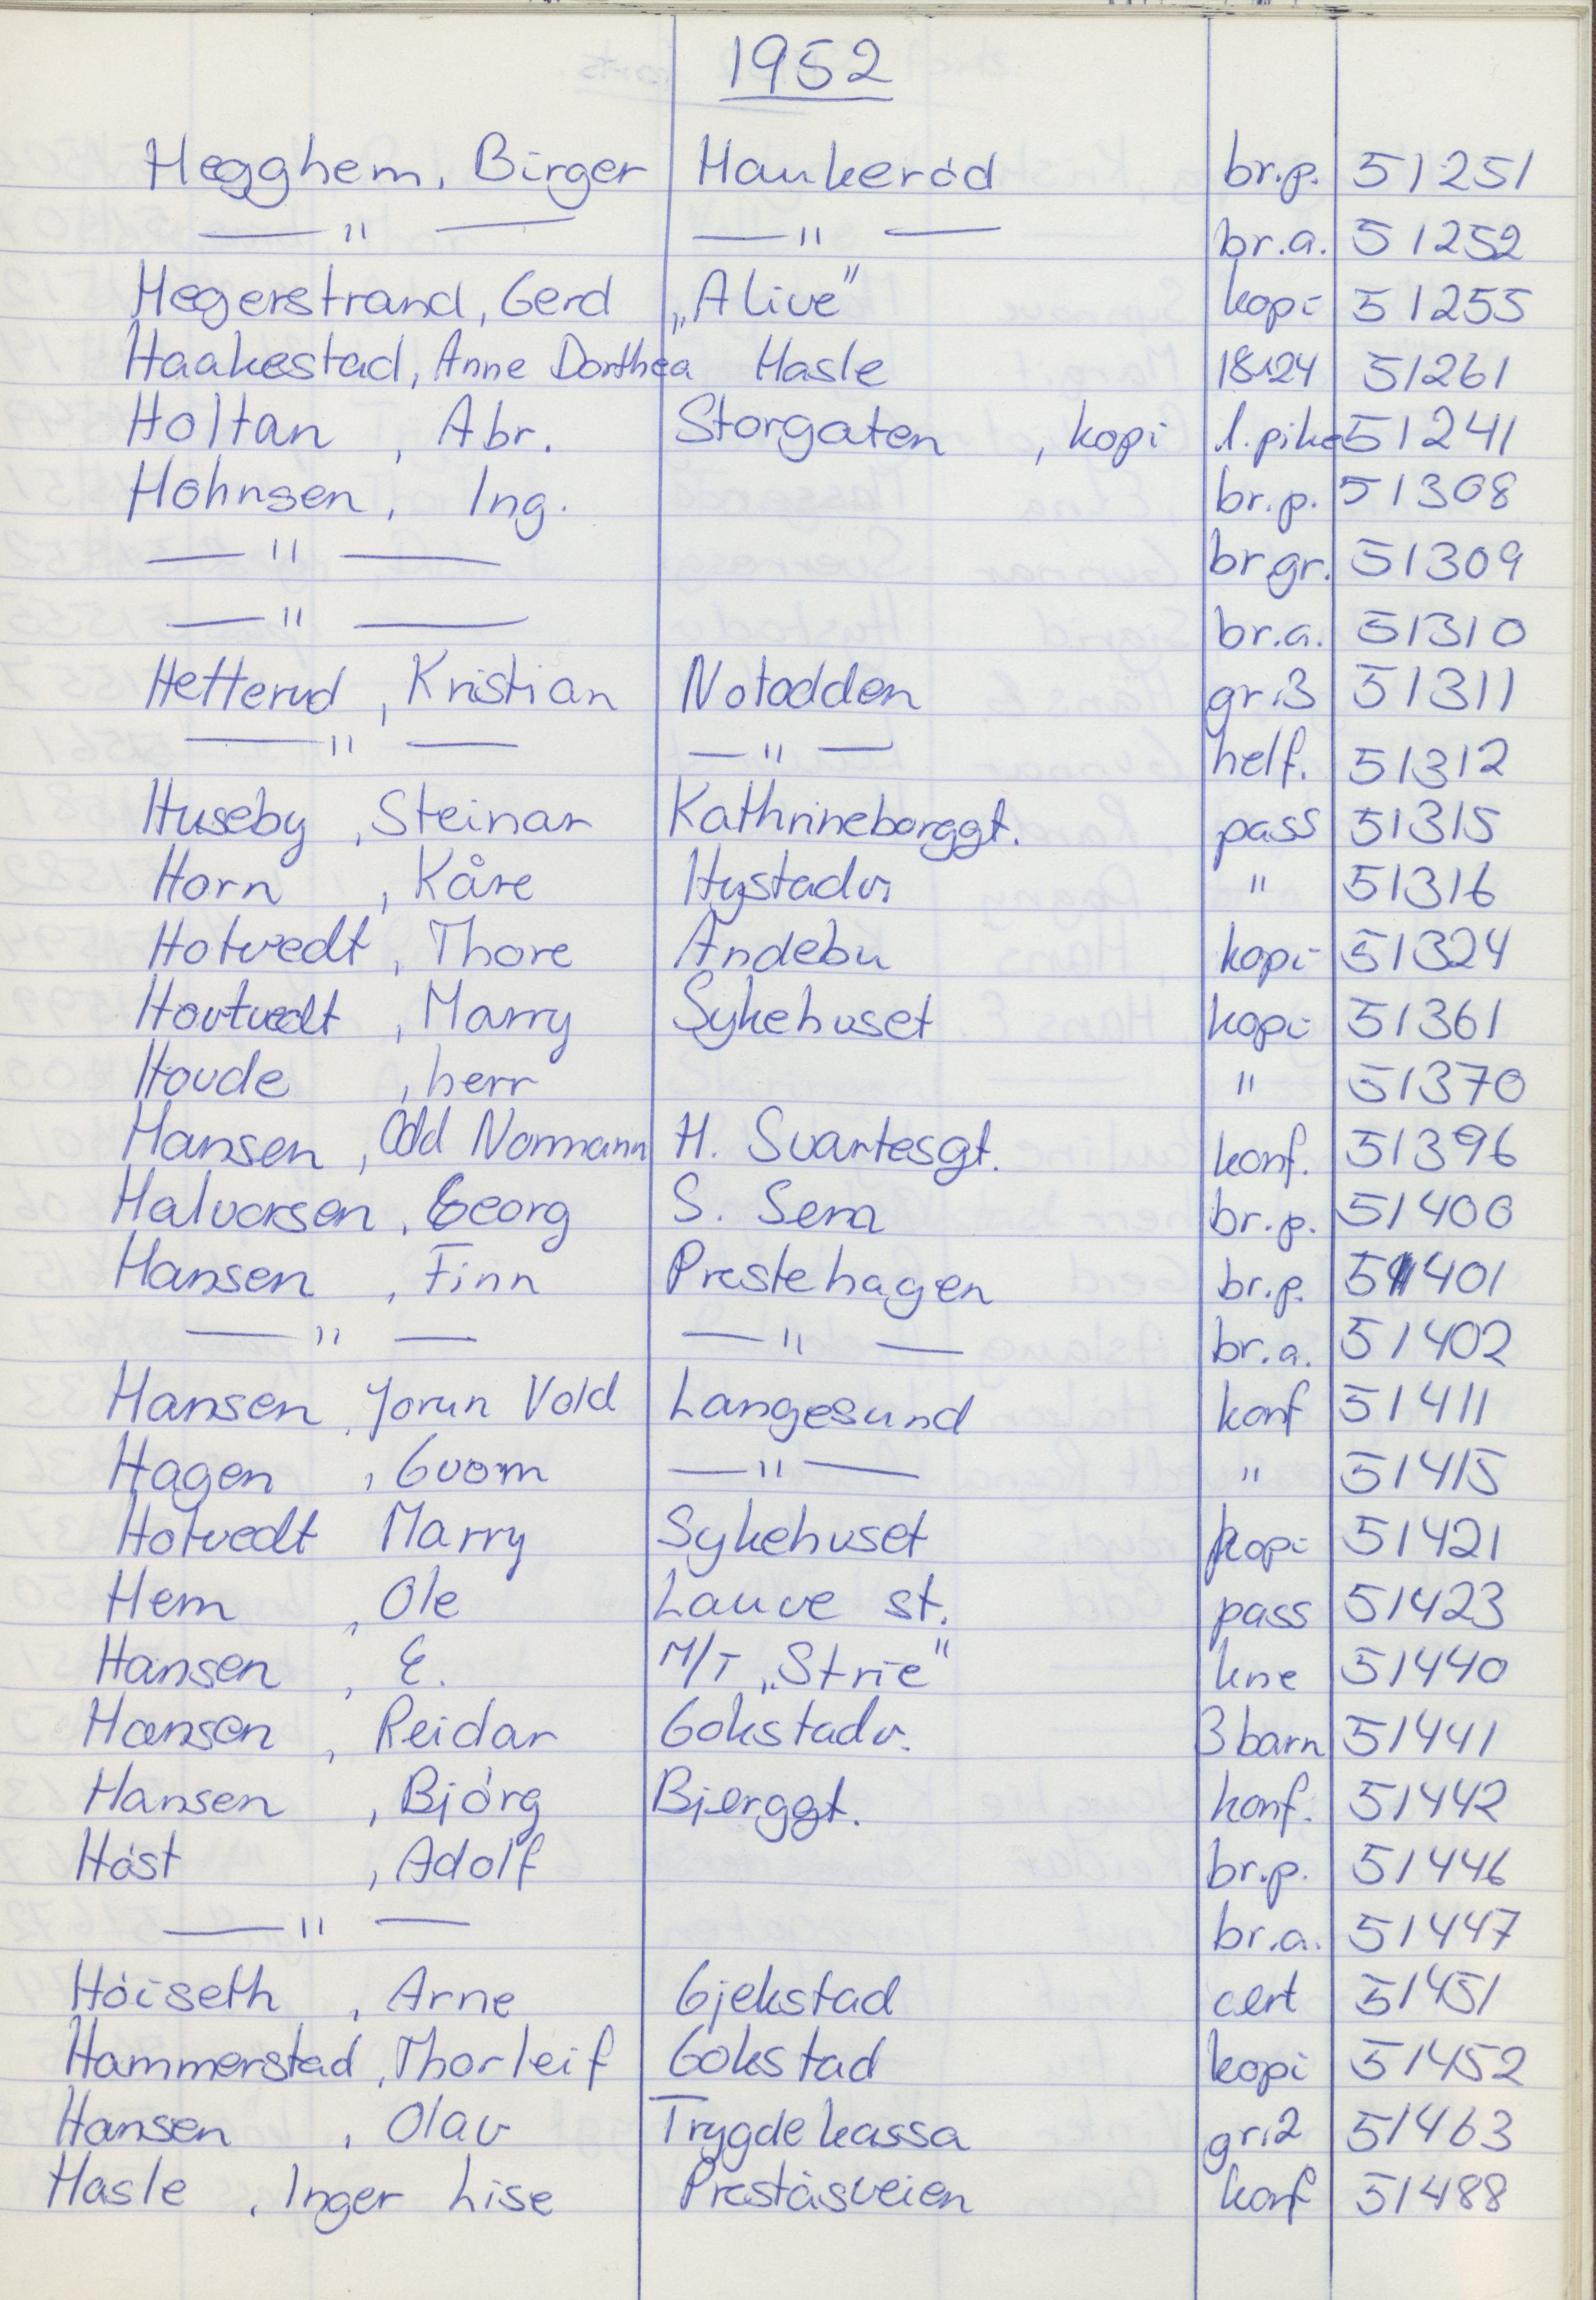 1952
Hegghem, Birger Haukeröd br.p. 51251
— " — — " — br.a. 51252
Hegerstrand, Gerd „Alive" kopi 51255
Haakestad, Anne Dorthea Hasle 18x24 51261
Holtan , Abr. Storgaten , kopi l.pike 51241
Hohnsen, Ing. br.p. 51308
— " — br.gr. 51309
— " — br.a. 51310
Hetterud , Kristian Notodden gr.3 51311
— " — — " — helf. 51312
Huseby , Steinar Kathrineborggt. pass 51315
Horn , Kåre Hystadv. " 51316
Hotvedt , Thore Andebu kopi 51324
Hovtvedt , Marry Sykehuset kopi 51361
Hovde , herr " 51370
Hansen , Odd Normann H. Svartesgt. konf. 51396
Halvorsen , Georg S. Sem br.p. 51400
Hansen , Finn Prestehagen br.p. 51401
— " — — " — br.a. 51402
Hansen , Jorun Vold Langesund konf 51411
Hagen , Guom — " — " 51415
Hotvedt Marry Sykehuset kopi 51421
Hem , Ole Lauve st. pass 51423
Hansen , E. M/T „Strie" kne 51440
Hansen , Reidar Gokstadv. 3 barn 51441
Hansen , Bjórg Bjerggt. konf. 51442
Hóst , Adolf br.p. 51446
— " — br.a. 51447
Hóiseth , Arne Gjekstad cert 51451
Hammerstad , Thorleif Gokstad kopi 51452
Hansen , Olav Trygdekassa gr.2 51463
Hasle , Inger Lise Preståsveien konf 51488